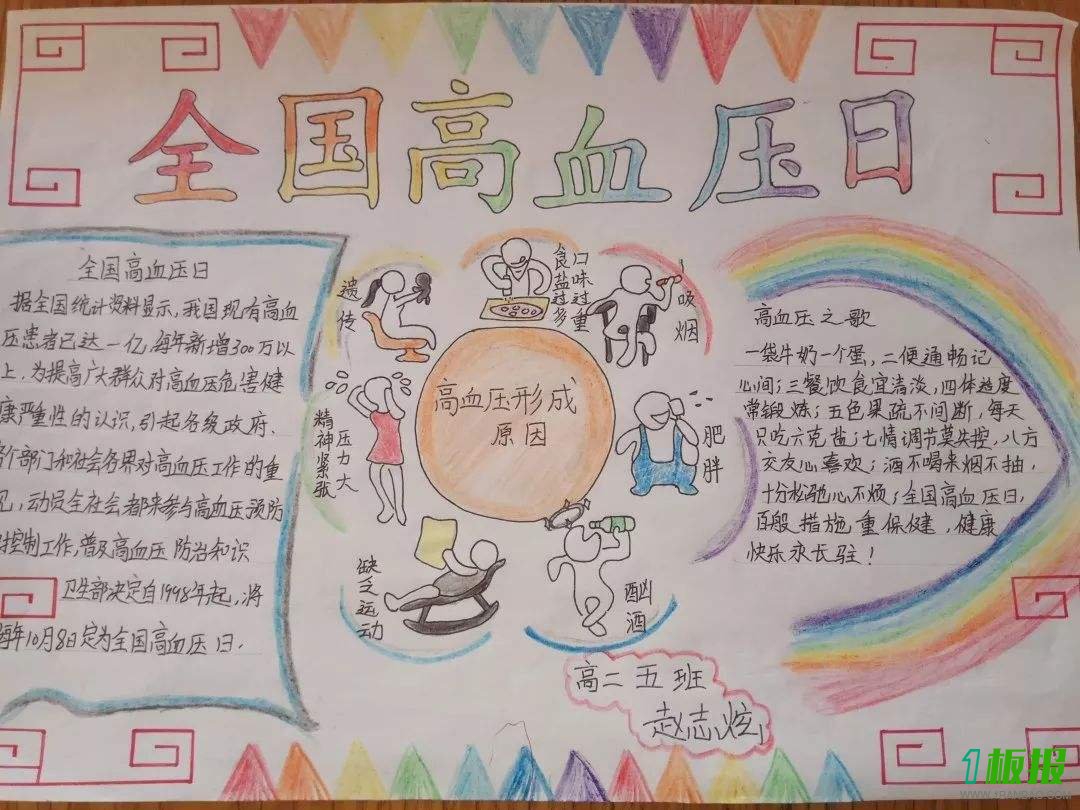 全国高血压日
全国高血压日
据全国统计资料显示,我国现有高血
压患者已达一亿,每年新增300万以
上.为提高广大群众对高血压危害健
康严重性的认识,引起各级政府.
各个部门和社会各界对高血压工作的重
视,动员全社会都来参与高血压预防
控制工作,普及高血压防治知识
卫生部决定自1998年起,将
每年10月8日定为全国高血压日.
遗传
口味过重
食盐过多
吸烟
肥胖
酗酒
缺乏运动
压力大
精神紧张
高血压形成
原因
高血压之歌
一袋牛奶一个蛋,二便通畅记
心间;三餐饮食宜清淡,四体适度
常锻炼;五色果疏不间断,每天
只吃六克盐;七情调节莫失控,八方
交友心喜欢;酒不喝来烟不抽,
十分松弛心不烦;全国高血压日,
百般措施重保健,健康
快乐永长驻!
高二五班
赵志炫
1板报
WWW.1BANBAO.COM